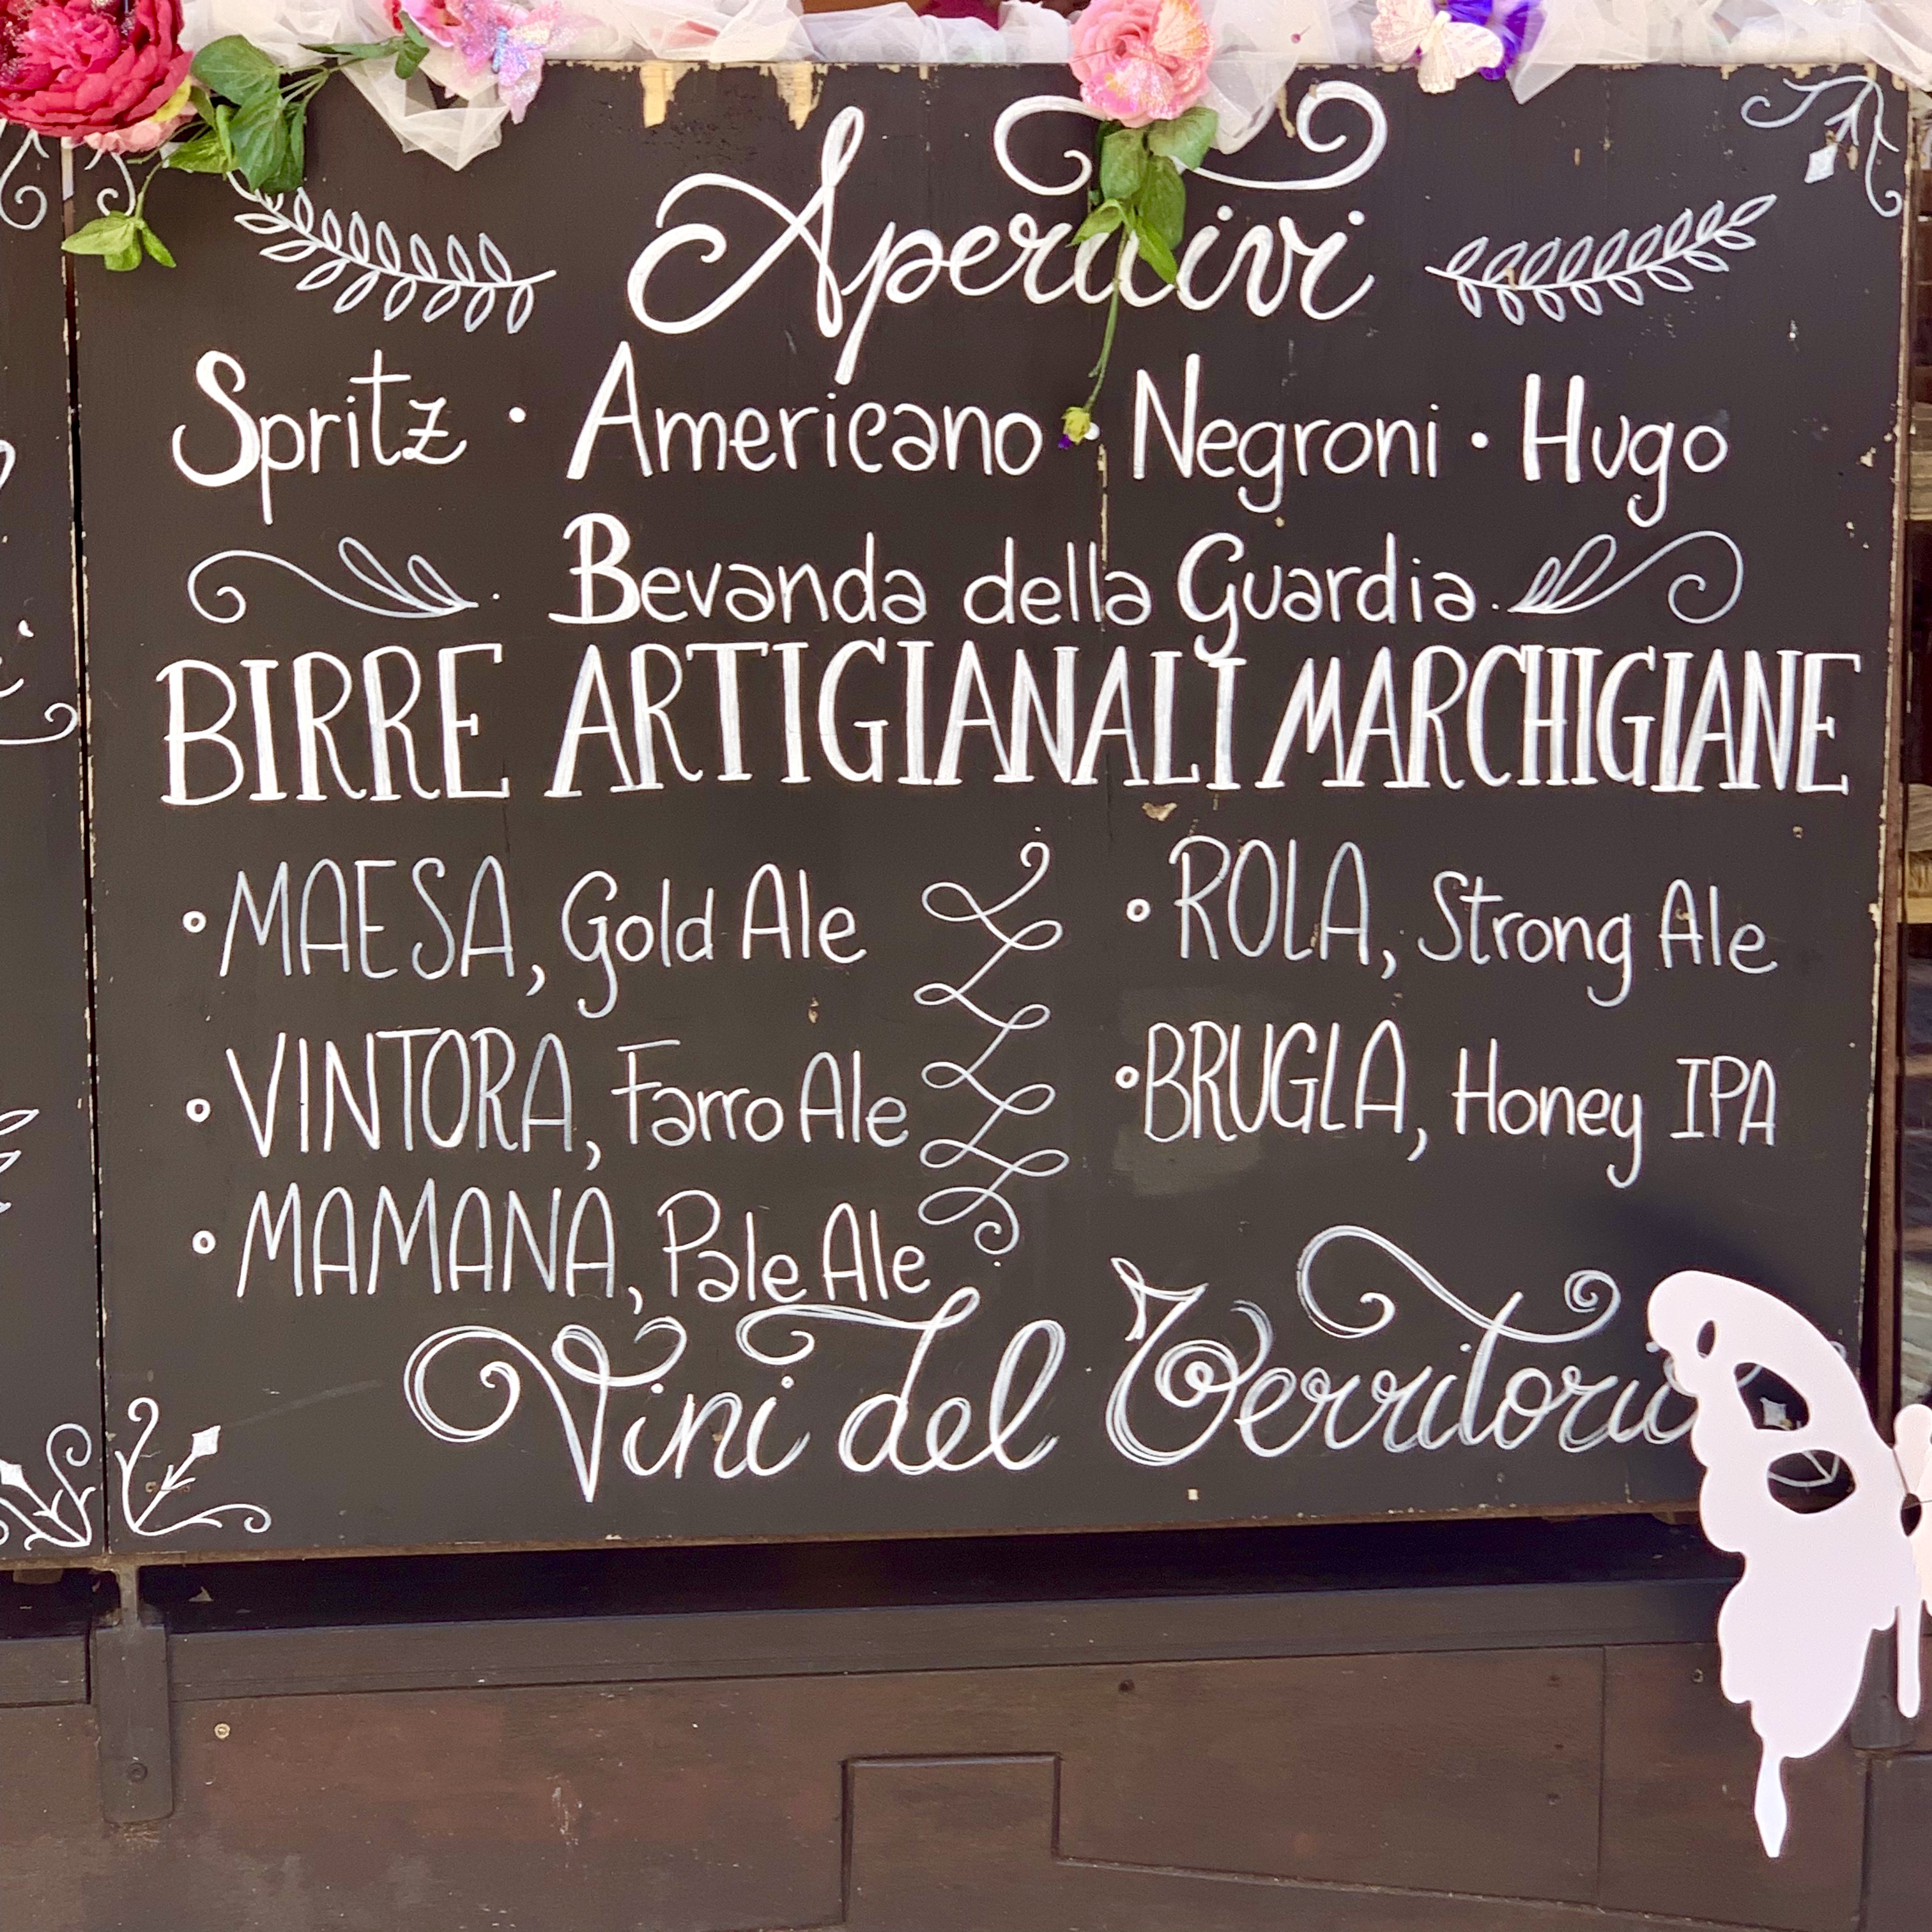 Aperitivi
Spritz • Americano • Negroni • Hugo
Bevanda della Guardia
BIRRE ARTIGIANALI MARCHIGIANE
• MAESA, Gold Ale
• VINTORA, Farro Ale
• MAMANA, Pale Ale
• ROLA, Strong Ale
• BRUGLA, Honey IPA
Vini del Territorio